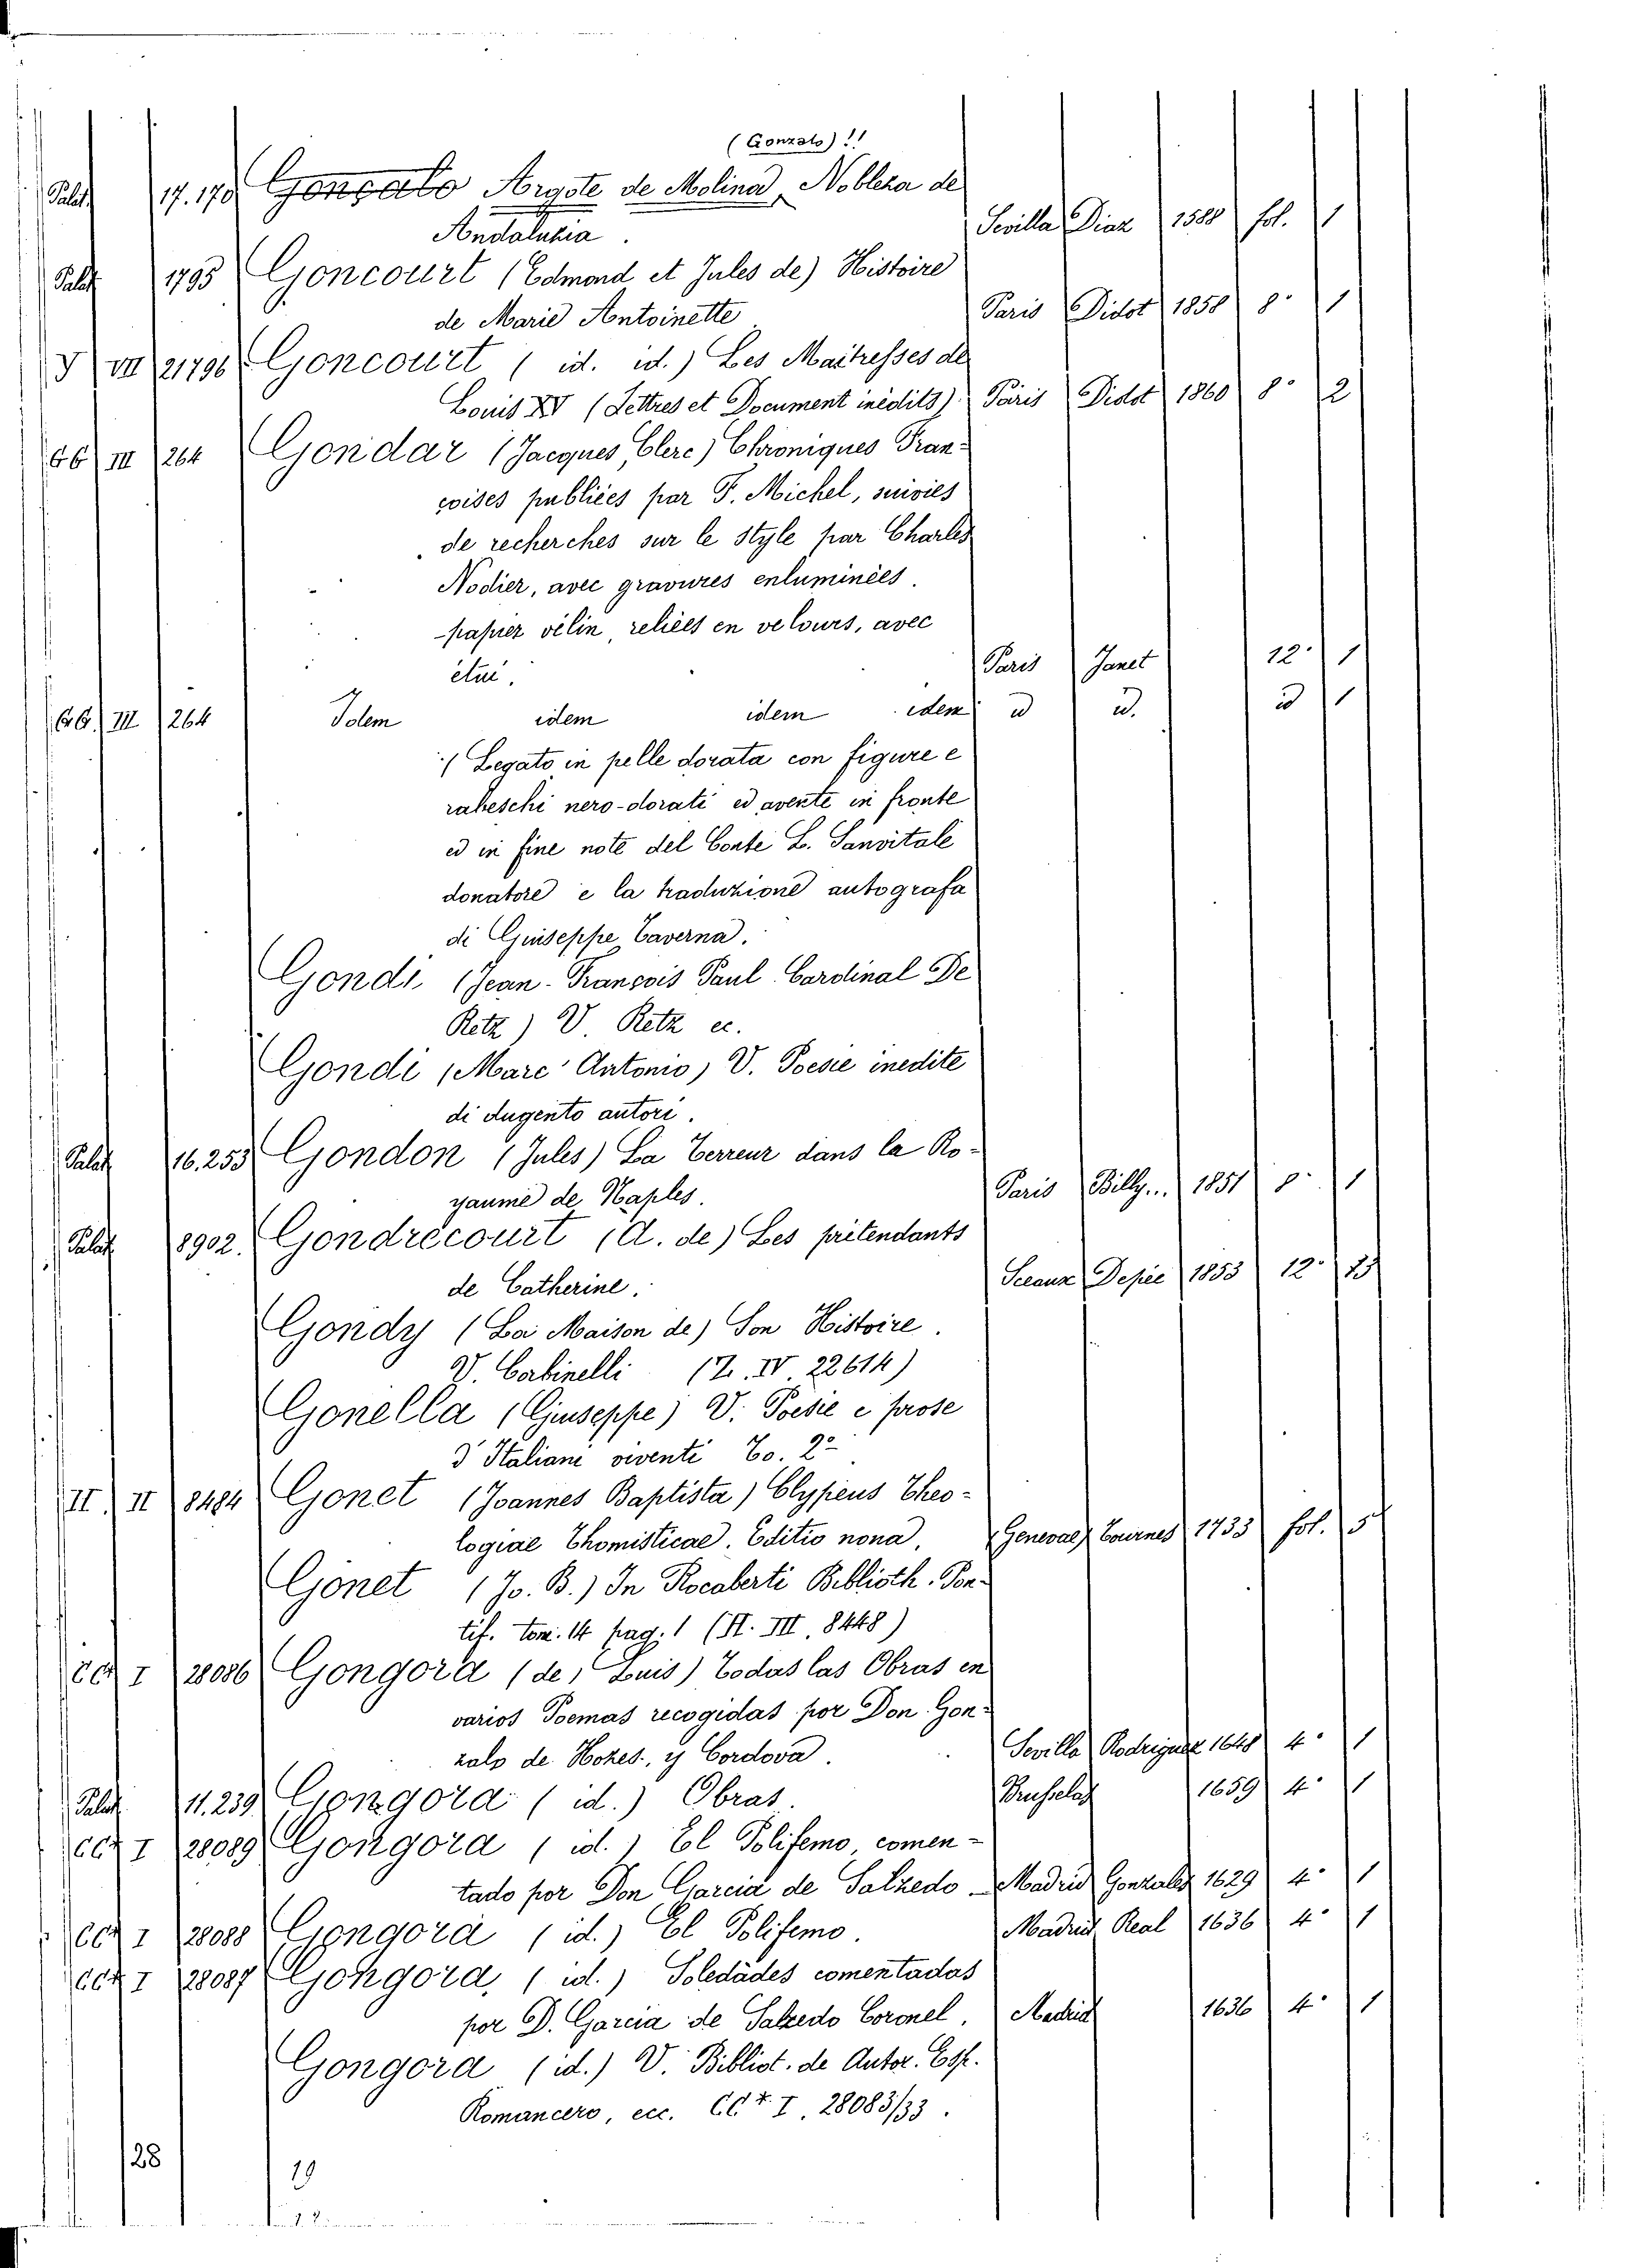 (Gonzalo) !!
Palat. 17.170 Gonzalo Argote de Molina, Nobleza de
Andaluzia. Sevilla Diaz 1588 fol. 1
Palat. 1795 Goncourt (Edmond et Jules de) Histoire
de Marie Antoinette Paris Didot 1858 8° 1
Y VII 21796 Goncourt (id. id.) Les Maitresses de
Louis XV (Lettres et Document inédits) Paris Didot 1860 8° 2
GG III 264 Gondar (Jacques, Clerc) Chroniques Fran-
çoises publiées par F. Michel, suivies
de recherches sur le style par Charles
Nodier, avec gravures enluminées.
papier vélin, reliées en velours, avec
étui. Paris Janet 12° 1
GG. III 264 Idem idem idem idem id id. id 1
(Legato in pelle dorata con figure e
rabeschi nero-dorati ed avente in fronte
ed in fine note del Conte L. Sanvitale
donatore e la traduzione autografa
di Giuseppe Caverna.
Gondi (Jean-François Paul Cardinal De
Retz) V. Retz ec.
Gondi (Marc' Antonio) V. Poesie inedite
di dugento autori.
Palat. 16.253 Gondon (Jules) La Terreur dans la Ro-
yaume de Naples. Paris Billy... 1851 8° 1
Palat. 8902. Gondrecourt (A. de) Les prétendants
de Catherine. Sceaux Depée 1853 12°
Gondy (La Maison de) Son Histoire.
V. Corbinelli (Z. IV. 22614)
Gonella (Giuseppe) V. Poesie e prose
d'Italiani viventi To. 2°
II. II 8484 Gonet (Joannes Baptista) Clypeus Theo-
logiae Thomisticae. Editio nona, Genevae Tournes 1733 fol. 5
Gonet (Jo. B.) In Rocaberti Biblioth. Pon-
tif. tom. 14 pag. 1 (II. III. 8448)
CC* I 28086 Gongora (de, Luis) Todas las Obras en
varios Poemas recogidas por Don Gon-
zalo de Hozes, y Cordova. Sevilla Rodriguez 1648 4° 1
Palat. 11.239 Gongora (id.) Obras. Brusselas 1659 4° 1
CC* I 28089 Gongora (id.) El Polifemo comen-
tado por Don Garcia de Salzedo Madrid Gonzales 1629 4° 1
CC* I 28088 Gongora (id.) El Polifemo. Madrid Real 1636 4° 1
CC* I 28087 Gongora, (id.) Soledades comentadas
por D. Garcia de Salzedo Coronel, Madrid 1636 4° 1
Gongora (id.) V. Bibliot. de Autor. Esp.
Romancero, ecc. CC* I. 28083/33.
28 19